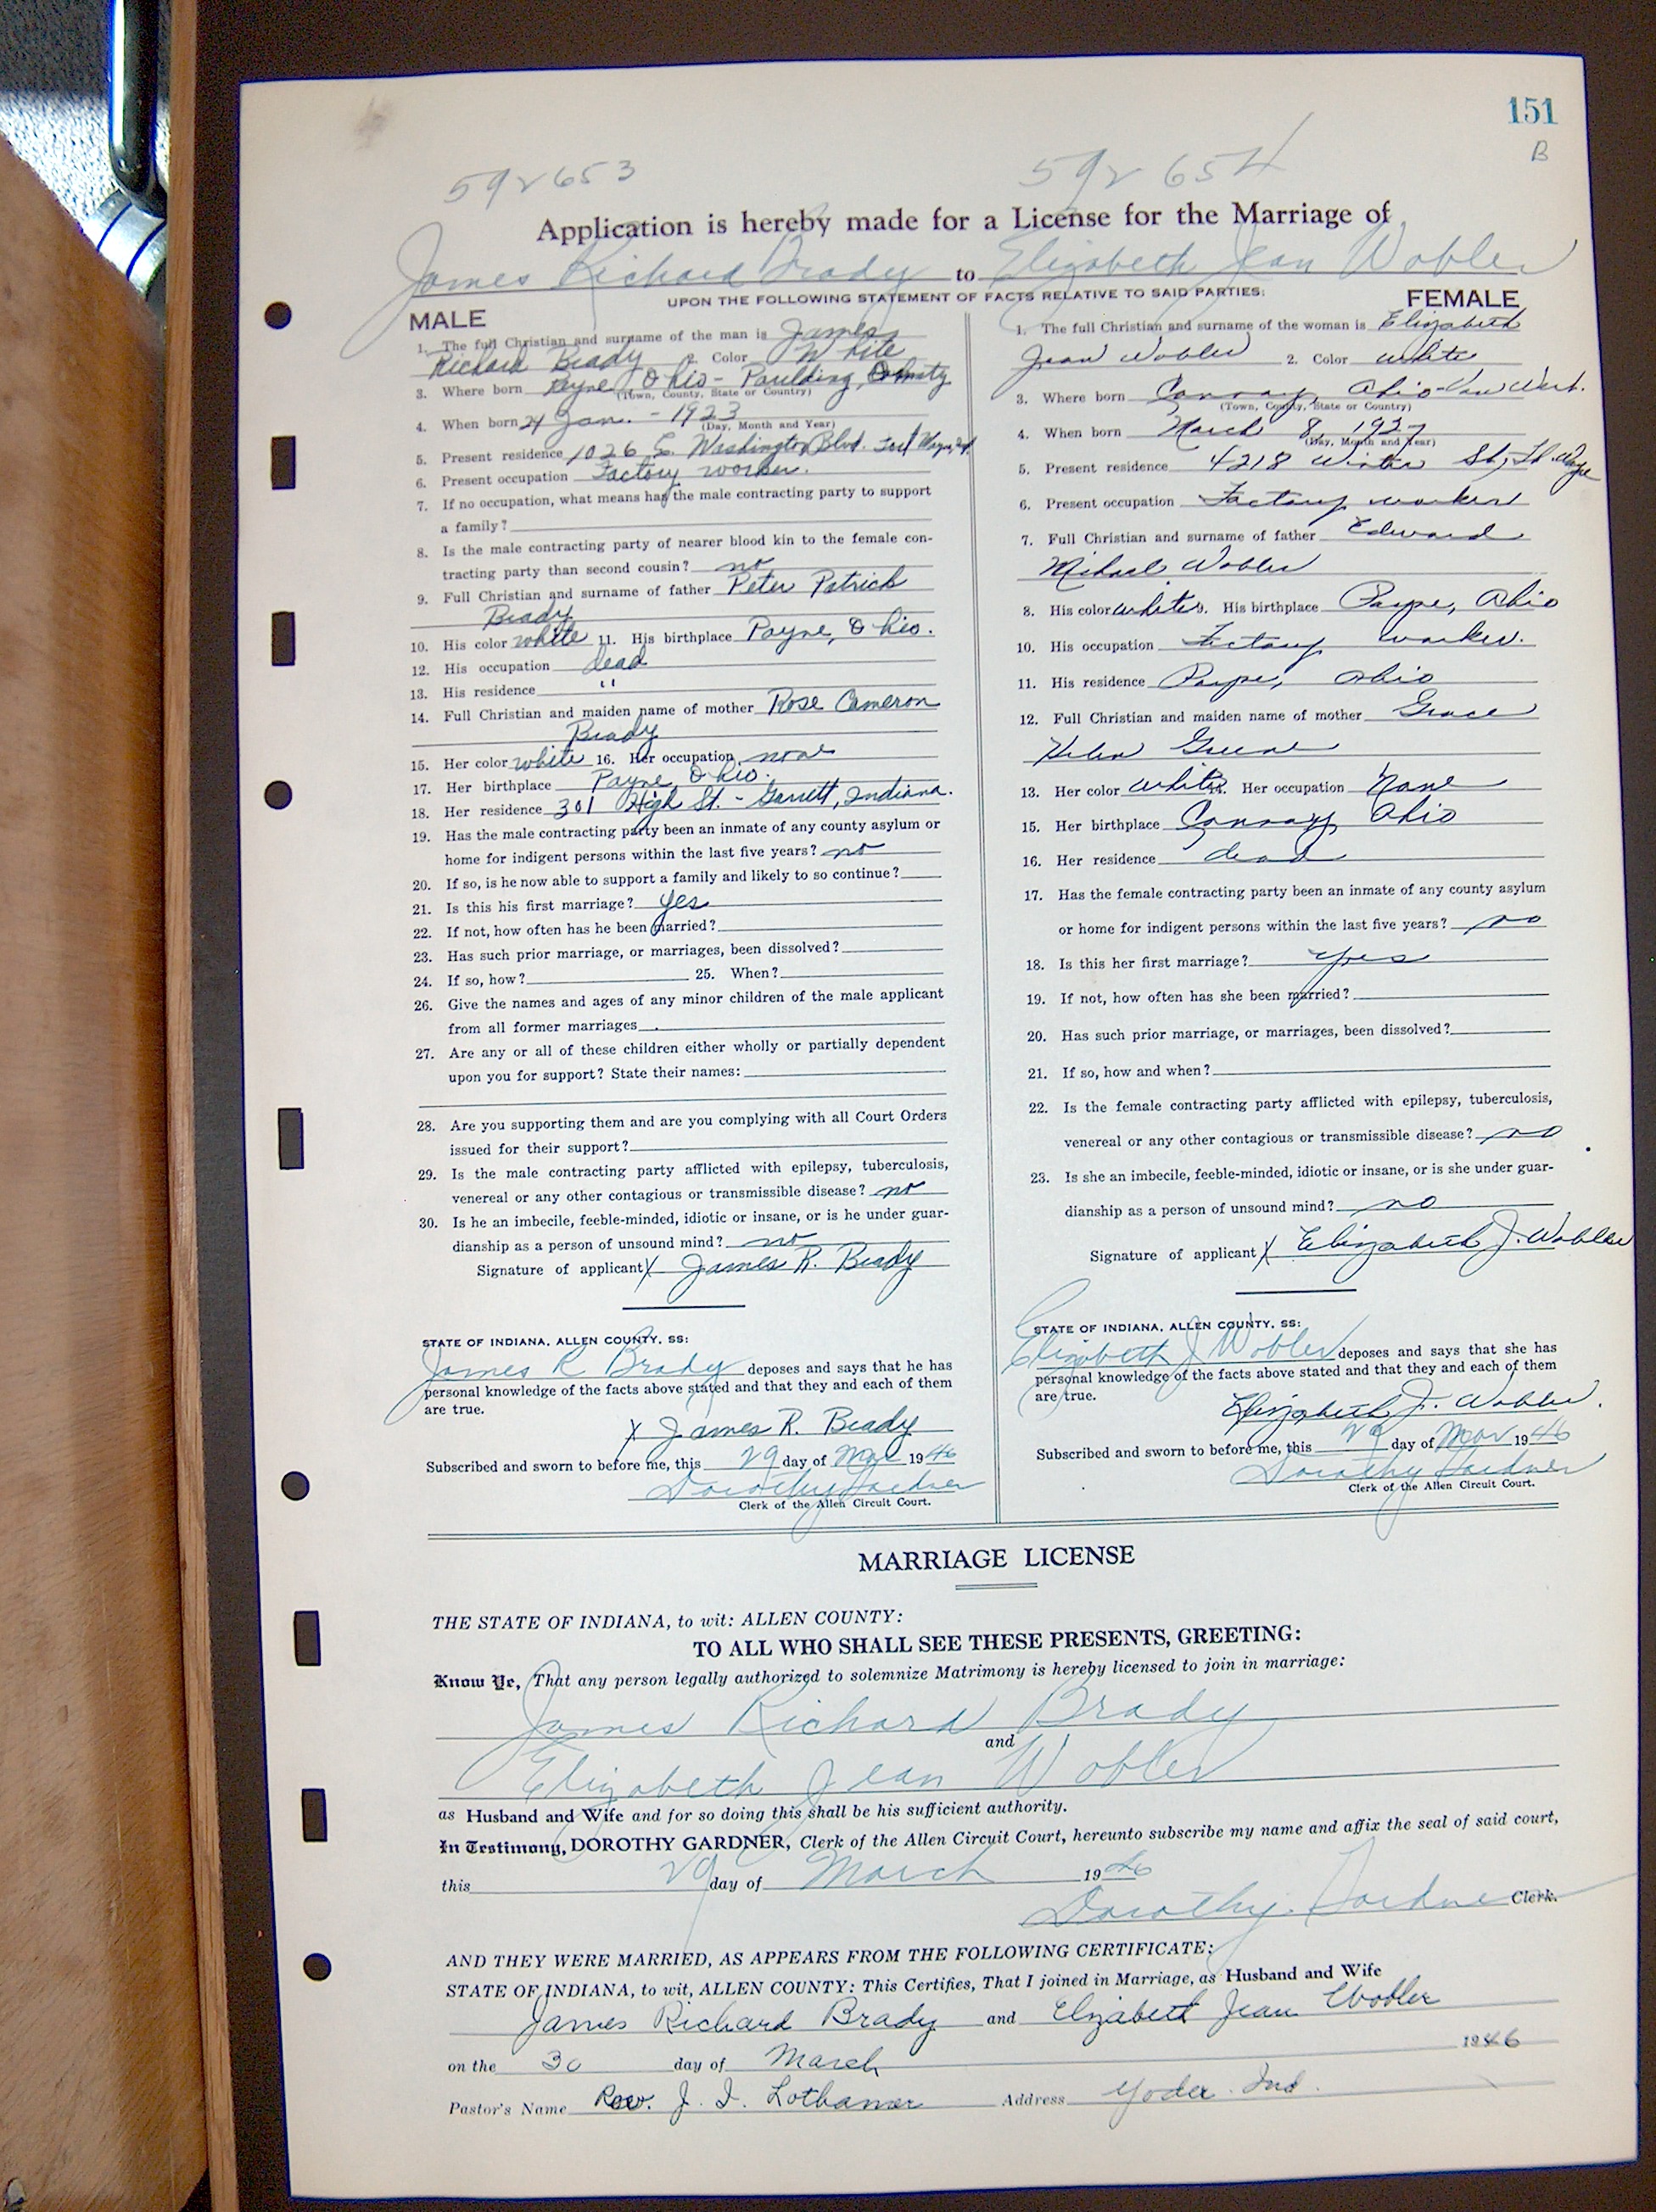 151
B
592653 592654
Application is hereby made for a License for the Marriage of
James Richard Brady to Elizabeth Jean Wobler
UPON THE FOLLOWING STATEMENT OF FACTS RELATIVE TO SAID PARTIES:
MALE
1. The full Christian and surname of the man is James
Richard Brady 2. Color White
3. Where born Payne, Ohio - Paulding, County
(Town, County, State or Country)
4. When born 24 Jan. - 1923
(Day, Month and Year)
5. Present residence 1026 E. Washington Blvd. Fort Wayne, Ind.
6. Present occupation Factory worker.
7. If no occupation, what means has the male contracting party to support
a family?
8. Is the male contracting party of nearer blood kin to the female con-
tracting party than second cousin? no
9. Full Christian and surname of father Peter Patrick
Brady
10. His color white 11. His birthplace Payne, Ohio.
12. His occupation dead
13. His residence "
14. Full Christian and maiden name of mother Rose Cameron
Brady
15. Her color white 16. Her occupation none
17. Her birthplace Payne, Ohio.
18. Her residence 301 High St. - Garrett, Indiana.
19. Has the male contracting party been an inmate of any county asylum or
home for indigent persons within the last five years? no
20. If so, is he now able to support a family and likely to so continue?
21. Is this his first marriage? yes
22. If not, how often has he been married?
23. Has such prior marriage, or marriages, been dissolved?
24. If so, how? 25. When?
26. Give the names and ages of any minor children of the male applicant
from all former marriages
27. Are any or all of these children either wholly or partially dependent
upon you for support? State their names:
28. Are you supporting them and are you complying with all Court Orders
issued for their support?
29. Is the male contracting party afflicted with epilepsy, tuberculosis,
venereal or any other contagious or transmissible disease? no
30. Is he an imbecile, feeble-minded, idiotic or insane, or is he under guar-
dianship as a person of unsound mind? no
Signature of applicant X James R. Brady
STATE OF INDIANA, ALLEN COUNTY, SS:
James R Brady deposes and says that he has
personal knowledge of the facts above stated and that they and each of them
are true.
X James R. Brady
Subscribed and sworn to before me, this 29 day of Mar 1946
Dorothy Gardner
Clerk of the Allen Circuit Court.
FEMALE
1. The full Christian and surname of the woman is Elizabeth
Jean Wobler 2. Color white
3. Where born Convoy, Ohio - Van Wert.
(Town, County, State or Country)
4. When born March 8, 1927
(Day, Month and Year)
5. Present residence 4218 Winter St, Ft. Wayne
6. Present occupation Factory worker
7. Full Christian and surname of father Edward
Michael Wobler
8. His color white 9. His birthplace Payne, Ohio
10. His occupation Factory worker.
11. His residence Payne, Ohio
12. Full Christian and maiden name of mother Grace
Helen Greene
13. Her color white 14. Her occupation None
15. Her birthplace Convoy, Ohio
16. Her residence dead
17. Has the female contracting party been an inmate of any county asylum
or home for indigent persons within the last five years? no
18. Is this her first marriage? yes
19. If not, how often has she been married?
20. Has such prior marriage, or marriages, been dissolved?
21. If so, how and when?
22. Is the female contracting party afflicted with epilepsy, tuberculosis,
venereal or any other contagious or transmissible disease? no
23. Is she an imbecile, feeble-minded, idiotic or insane, or is she under guar-
dianship as a person of unsound mind? no
Signature of applicant X Elizabeth J. Wobler
STATE OF INDIANA, ALLEN COUNTY, SS:
Elizabeth J Wobler deposes and says that she has
personal knowledge of the facts above stated and that they and each of them
are true.
Elizabeth J. Wobler.
Subscribed and sworn to before me, this 29 day of Mar 1946
Dorothy Gardner
Clerk of the Allen Circuit Court.
MARRIAGE LICENSE
THE STATE OF INDIANA, to wit: ALLEN COUNTY:
TO ALL WHO SHALL SEE THESE PRESENTS, GREETING:
Know Ye, That any person legally authorized to solemnize Matrimony is hereby licensed to join in marriage:
James Richard Brady
and
Elizabeth Jean Wobler
as Husband and Wife and for so doing this shall be his sufficient authority.
In Testimony, DOROTHY GARDNER, Clerk of the Allen Circuit Court, hereunto subscribe my name and affix the seal of said court,
this 29 day of March 1946
Dorothy Gardner Clerk.
AND THEY WERE MARRIED, AS APPEARS FROM THE FOLLOWING CERTIFICATE:
STATE OF INDIANA, to wit, ALLEN COUNTY: This Certifies, That I joined in Marriage, as Husband and Wife
James Richard Brady and Elizabeth Jean Wobler
on the 30 day of March 1946
Pastor's Name Rev. J. I. Lothamer Address Yoder Ind.